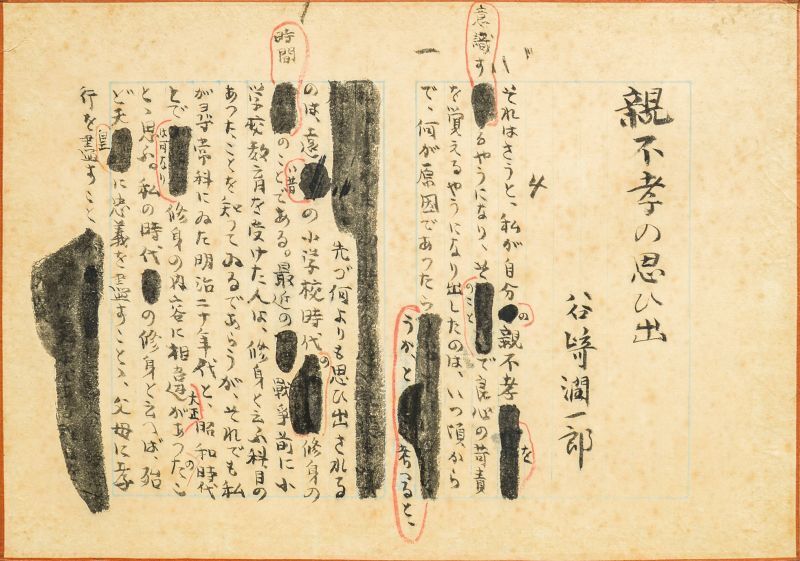 親不孝の思ひ出
谷﨑潤一郎
4
一
それはさうと、私が自分の親不孝を
意識するやうになり、そのことで良心の苛責
を覚えるやうになり出したのは、いつ頃から
で、何が原因であつたらうかと考へると、
先づ何よりも思ひ出される
のは、遠い昔の小学校時代の修身の
時間のことである。最近の戦争前に小
学校教育を受けた人は、修身と云ふ科目の
あつたことを知つてゐるであらうが、それでも私
が尋常科にゐた明治二十年代と、大正昭和時代
とでは可なり修身の内容に相違があつたこ
とゝ思ふ。私の時代の修身と云へば、殆
ど天皇に忠義を盡すことゝ、父母に孝
行を盡すこと